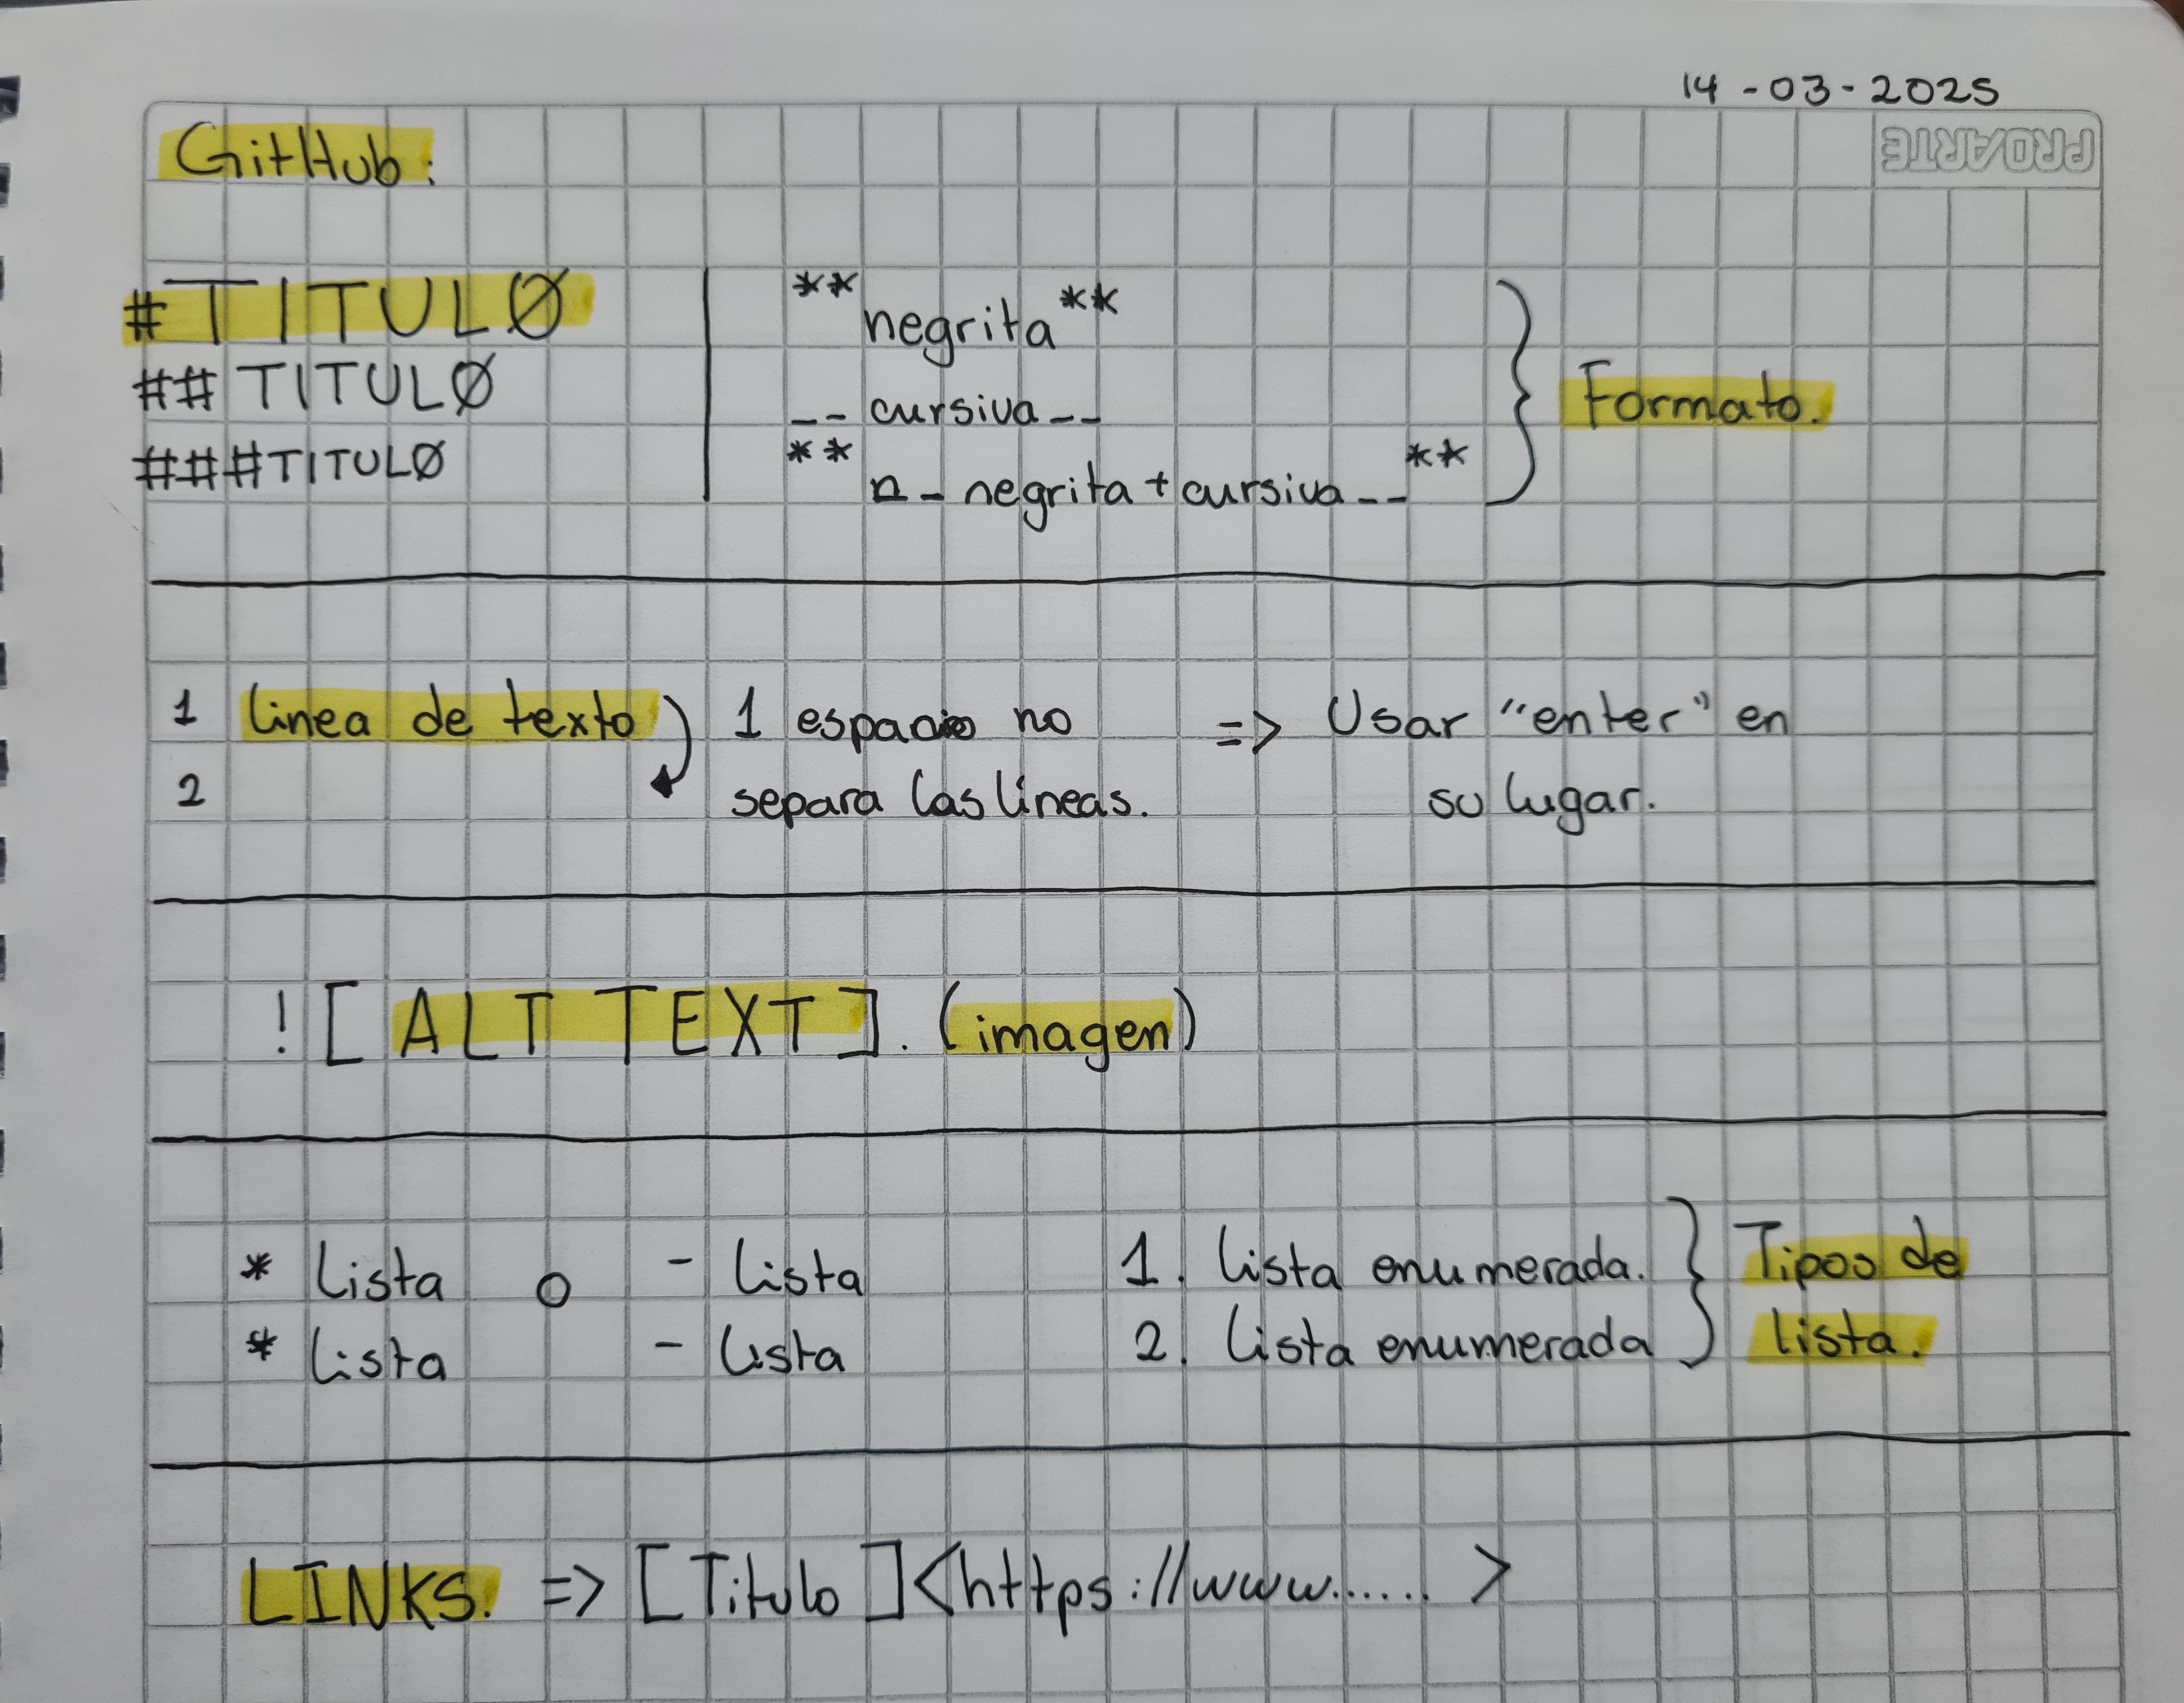 14-03-2025
PROARTE
GitHub:
#TITULØ
##TITULØ
###TITULØ
**negrita**
__cursiva__
**__negrita+cursiva__**
Formato.
1 linea de texto
2
1 espacio no
separa las líneas.
=> Usar "enter" en
su lugar.
![ALT TEXT].(imagen)
* Lista o - Lista
* Lista - Lista
1. Lista enumerada.
2. Lista enumerada
Tipos de
lista.
LINKS. => [Titulo]<https://www...... >